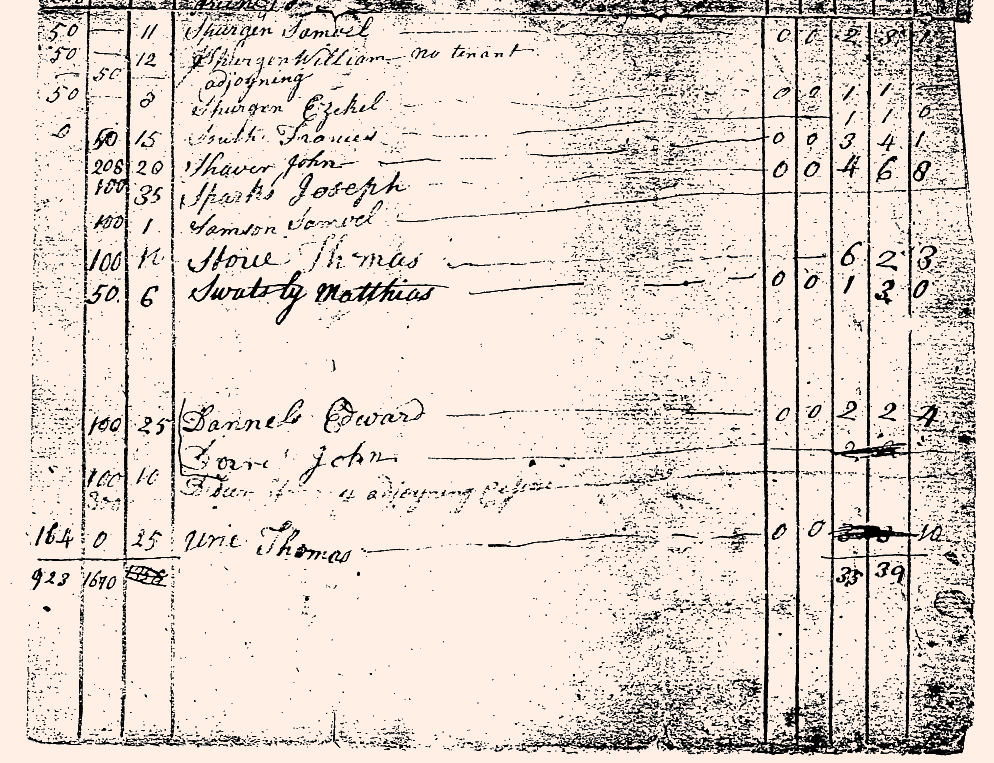 50 — 11 Spurgen Samuel 0 0 2 8 1
50 — 12 Spurgen William no tenant
— 50 adjoyning
50 — 8 Spurgen Ezekel 0 0 1 1
1 1 0
0 50 15 South Frances 0 0 3 4 1
208 20 Shaver John 0 0 4 6 8
100 35 Sparks Joseph
100 1 Samson Samuel
100 Stone Thomas 6 2 3
50 6 Swatsly Matthias 0 0 1 3 0
100 25 Dannels Edward 0 0 2 2 4
John
100 10 adjoyning
300
164 0 25 Urie Thomas 0 0 10
923 1670 33 39